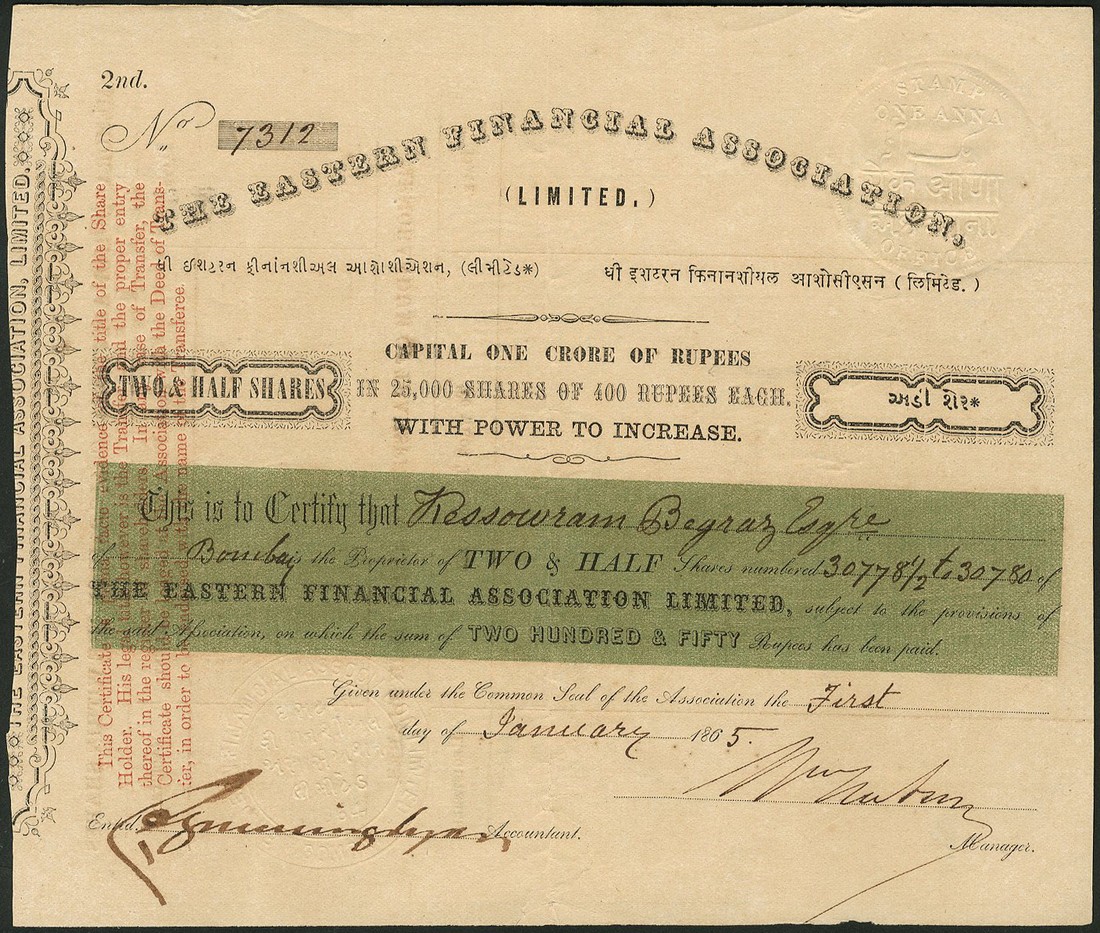 2nd.
No. 7312
STAMP
ONE ANNA
OFFICE
THE EASTERN FINANCIAL ASSOCIATION,
(LIMITED.)
ધી ઈશટરન ફીનાંનશીઅલ આશોશીએશન, (લીમીટેડ*)
धी इशटरन फिनानशीयल आशोसीएसन ( लिमिटेड. )
CAPITAL ONE CRORE OF RUPEES
TWO & HALF SHARES
IN 25,000 SHARES OF 400 RUPEES EACH.
અડી શેર*
WITH POWER TO INCREASE.
This is to Certify that Kessowram Begraz Esqre
of Bombay is the Proprietor of TWO & HALF Shares numbered 30778 1/2 to 30780 of
THE EASTERN FINANCIAL ASSOCIATION LIMITED, subject to the provisions of
the said Association, on which the sum of TWO HUNDRED & FIFTY Rupees has been paid.
Given under the Common Seal of the Association the First
day of January 1865.
Entd. Accountant.
Manager.
THE EASTERN FINANCIAL ASSOCIATION, LIMITED.
This Certificate is the evidence of the title of the Share
Holder. His legal the Transfer and the proper entry
thereof in the register of shareholders. In case of Transfer, the
Certificate should be Association with the Deed of Trans-
fer, in order to be name of the Transferee.